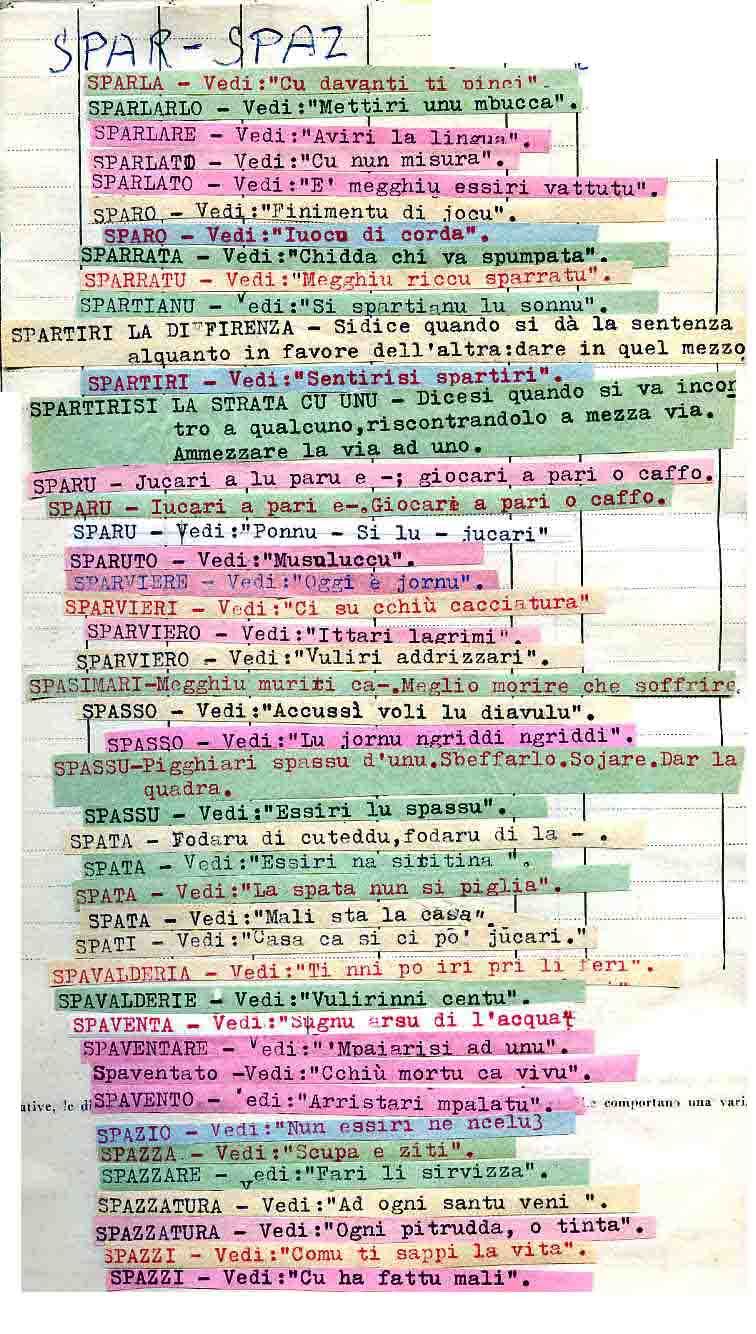 SPAR-SPAZ
SPARLA - Vedi:"Cu davanti ti pinci".
SPARLARLO - Vedi:"Mettiri unu mbucca".
SPARLARE - Vedi:"Aviri la lingua".
SPARLATO - Vedi:"Cu nun misura".
SPARLATO - Vedi:"E' megghiu essiri vattutu".
SPARO - Vedi:"Finimentu di jocu".
SPARO - Vedi:"Iuocu di corda".
SPARRATA - Vedi:"Chidda chi va spumpata".
SPARRATU - Vedi:"Megghiu riccu sparratu".
SPARTIANU - Vedi:"Si spartianu lu sonnu".
SPARTIRI LA DIFFIRENZA - Sidice quando si dà la sentenza
alquanto in favore dell'altra:dare in quel mezzo
SPARTIRI - Vedi:"Sentirisi spartiri".
SPARTIRISI LA STRATA CU UNU - Dicesi quando si va incon
tro a qualcuno,riscontrandolo a mezza via.
Ammezzare la via ad uno.
SPARU - Jucari a lu paru e -; giocari a pari o caffo.
SPARU - Iucari a pari e-.Giocare a pari o caffo.
SPARU - Vedi:"Ponnu - Si lu - jucari"
SPARUTO - Vedi:"Musuluccu".
SPARVIERE - Vedi:"Oggi è jornu".
SPARVIERI - Vedi:"Ci su cchiù cacciatura"
SPARVIERO - Vedi:"Ittari lagrimi".
SPARVIERO - Vedi:"Vuliri addrizzari".
SPASIMARI-Megghiu muriri ca-.Meglio morire che soffrire.
SPASSO - Vedi:"Accussì voli lu diavulu".
SPASSO - Vedi:"Lu jornu ngriddi ngriddi".
SPASSU-Pigghiari spassu d'unu.Sbeffarlo.Sojare.Dar la
quadra.
SPASSU - Vedi:"Essiri lu spassu".
SPATA - Fodaru di cuteddu,fodaru di la - .
SPATA - Vedi:"Essiri na siritina ".
SPATA - Vedi:"La spata nun si piglia".
SPATA - Vedi:"Mali sta la casa".
SPATI - Vedi:"Casa ca si ci pò' jucari."
SPAVALDERIA - Vedi:"Ti nni po iri pri li feri".
SPAVALDERIE - Vedi:"Vulirinni centu".
SPAVENTA - Vedi:"Sugnu arsu di l'acqua
SPAVENTARE - Vedi:"'Mpaiarisi ad unu".
Spaventato -Vedi:"Cchiù mortu ca vivu".
SPAVENTO - Vedi:"Arristari mpalatu".
ative, le di
comportano una vari.
SPAZIO - Vedi:"Nun essiri ne ncelu3
SPAZZA - Vedi:"Scupa e ziti".
SPAZZARE - Vedi:"Fari li sirvizza".
SPAZZATURA - Vedi:"Ad ogni santu veni ".
SPAZZATURA - Vedi:"Ogni pitrudda, o tinta".
SPAZZI - Vedi:"Comu ti sappi la vita".
SPAZZI - Vedi:"Cu ha fattu mali".